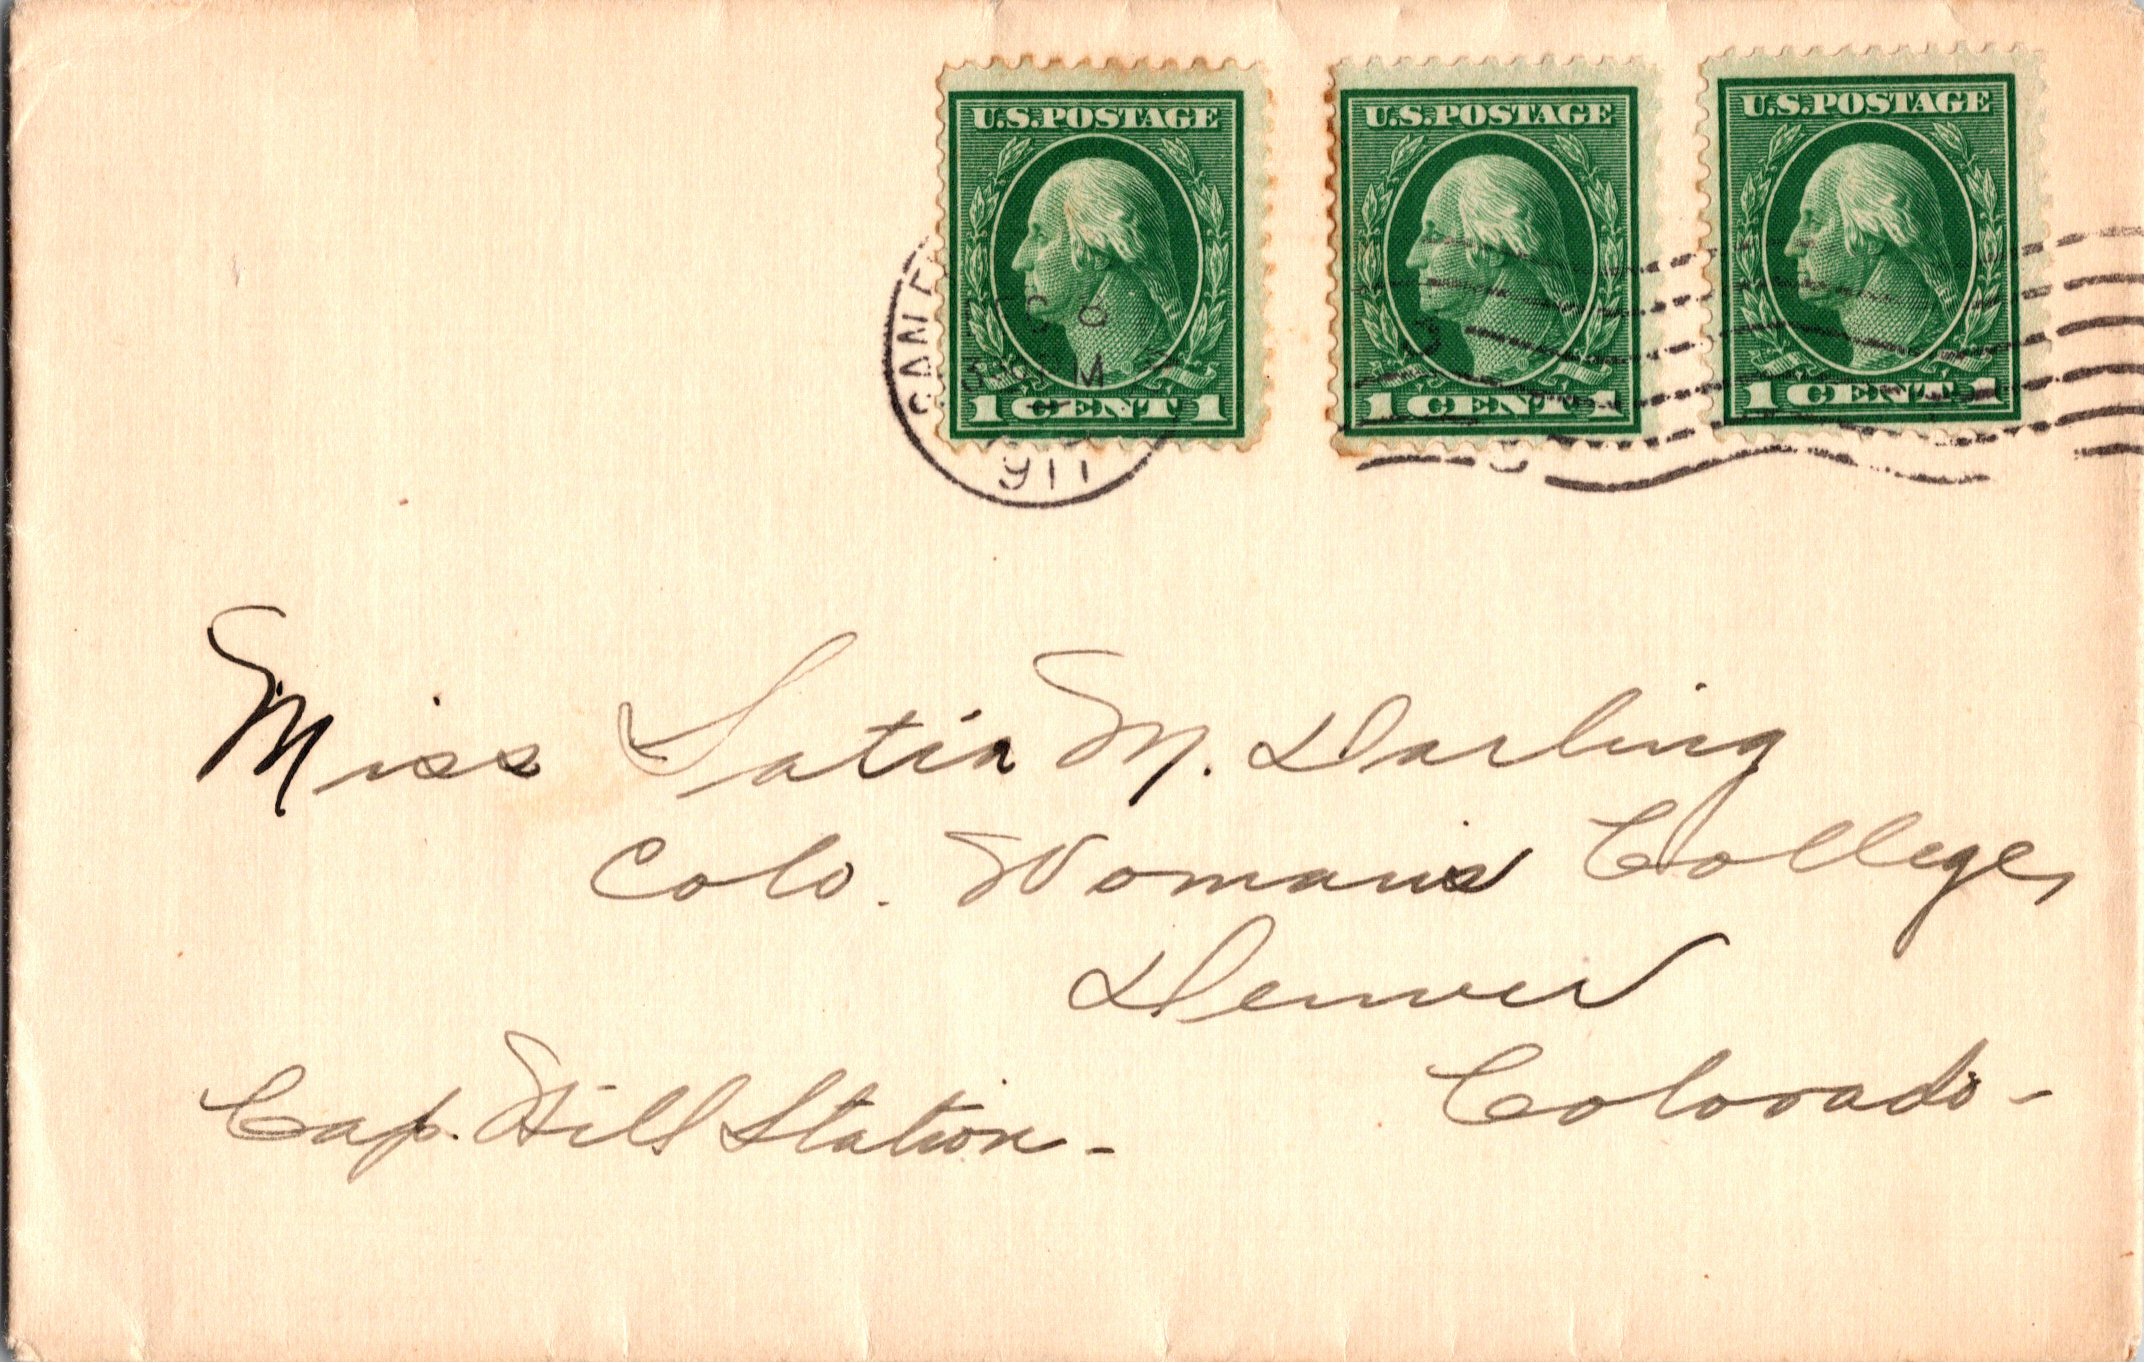 U.S. POSTAGE
1 CENT 1
U.S. POSTAGE
1 CENT 1
U.S. POSTAGE
1 CENT 1
911
Miss Latia M. Darling
Colo. Woman's College,
Denver
Colorado-
Cap. Hill Station-